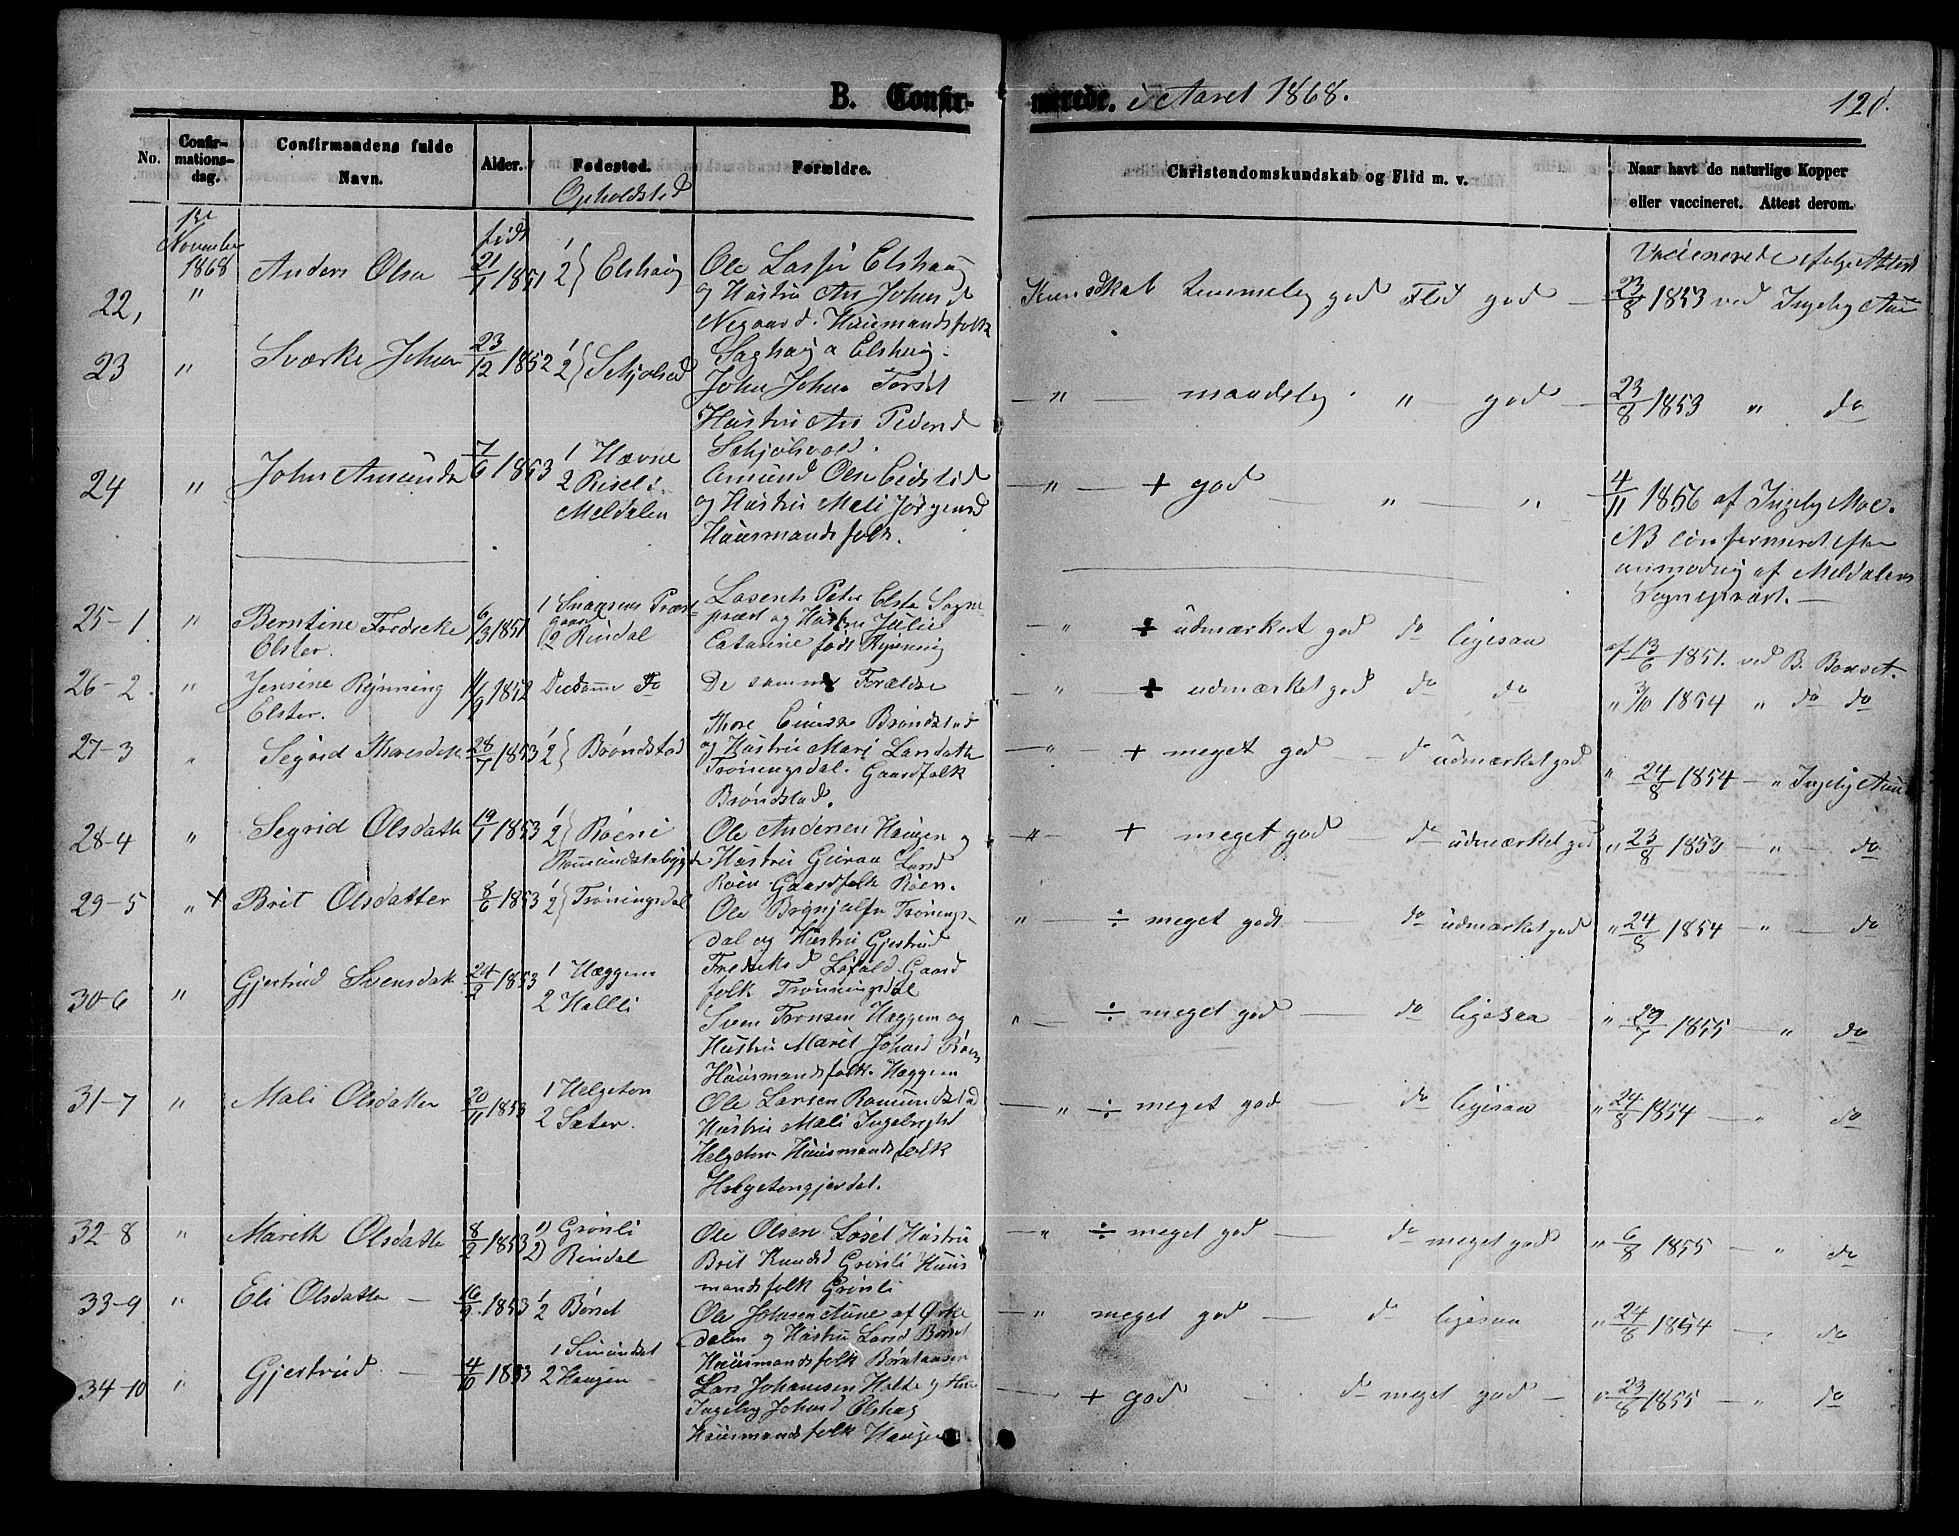 B. Confir-
merede. i Aaret 1868.
120.
No.
Confir-
mations-
dag.
Confirmandens fulde
Navn.
Alder.
Fødested.
Opholdsted
Forældre.
Christendomskundskab og Flid m. v.
Naar havt de naturlige Kopper
eller vaccineret. Attest derom.
1ste
November
1868
født
22, " Anders Olsen 21/1 1851 1 2 } Elshaug
Ole Larsen Elshaug
og Hustru An Johnsd
Negaard. Huusmandsfolk
Saghaug a Elshaug.
Kundskab temmelig god Flid god
Vaccinerede ifølge Attest
23/8 1853 ved Ingebg Aune
23 " Sværke Johnsen 23/12 1852 1 2 } Schjølvold
John Johnsen Torset
Hustru An Pedersd
Schjølvold.
" maadelig " god
23/8 1853 " do
24 " John Amundsen 7/6 1853
1 Hævne
2 Riseli
Meldalen
Amund Olsen Eidslid
og Hustru Mali Jørgensd
Huusmandsfolk.
" + god " "
4/11 1856 af Ingebg Moe.
NB Confirmeret efter
anmodng af Meldalens
Sognepræst.
25-1 " Berntine Fredrekke
Elster.
6/3 1851
1 Snaasens Præst-
gaard
2 Rindal
Lorents Peter Elster Sogne
præst og Hustru Julie
Catarine født Rynning
" ÷ udmærket god do ligesaa
af 13/6 1851. ved B. Bonset.
26-2. " Jensine Rynning
Elster.
11/9 1852
De samme Forældre
" ÷ udmærket god do do
" 3/10 1854 " do do
27-3 " Segrid Thoresdatt 28/7 1853 1 2 } Brøndstad
Thore Brøndstad
og Hustru Mari Larsdatter
Trøningsdal. Gaardfolk
Brøndstad.
" + meget god do udmærket god
" 24/8 1854 " Ingebg Aune
28-4 " Segrid Olsdatt 19/1 1853 1 2 } Røen
Romundstabygd
Ole Andersen Haugen og
Hustru Guroa Larsd
Røen Gaardfolk Røen.
" + meget god do udmærket god
" 23/8 1853 " do
29-5 " + Brit Olsdatter 8/6 1853 1 2 } Trøningsdal
Ole Brynjulfn Trønings-
dal og Hustru Gjertrud
Fredriksd Løfald Gaard
folk Trønningsdal
" ÷ meget godt do udmærket god
" 24/8 1854 " do
30-6 " Gjertrud Svensdatt 24/2 1853
1 Hæggem
2 Halli
Sven Tronsen Hæggem og
Hustru Marit Johnsd Røen
Huusmandsfolk. Hæggem
" ÷ meget god do ligesaa
" 29/7 1855 " do
31-7 " Mali Olsdatter 20/11 1853
1 Helgeton
2 Sæter.
Ole Larsen Romundstad
Hustru Mali Ingebrigtsd
Helgeton Huusmandsfolk
Helgetongjerdet.
" ÷ meget god do ligesaa
" 24/8 1854 " do
32-8 " Marith Olsdatter 8/2 1853
1) Grønli
2) Rindal
Ole Olsen Løset Hustru
Brit Knudsd Grønli Huus
mandsfolk Grønli
" ÷ meget god do meget god
" 6/8 1855 " do
33-9 " Eli Olsdatter 16/9 1853 1 2 Børset
Ole Johnsen Aune af Ørke
dalen og Hustru Larsd Børset
Huusmandsfolk
" meget god do ligesaa
" 24/8 1854 " do
34-10 " Gjertrud 4/10 1853
1 Simundset
2 Haugen
Lars Johansen Holte og Hu
Ingebg Johnsd Elshaug
Huusmandsfolk Haugen
+ god do meget god
" 23/8 1855 " do